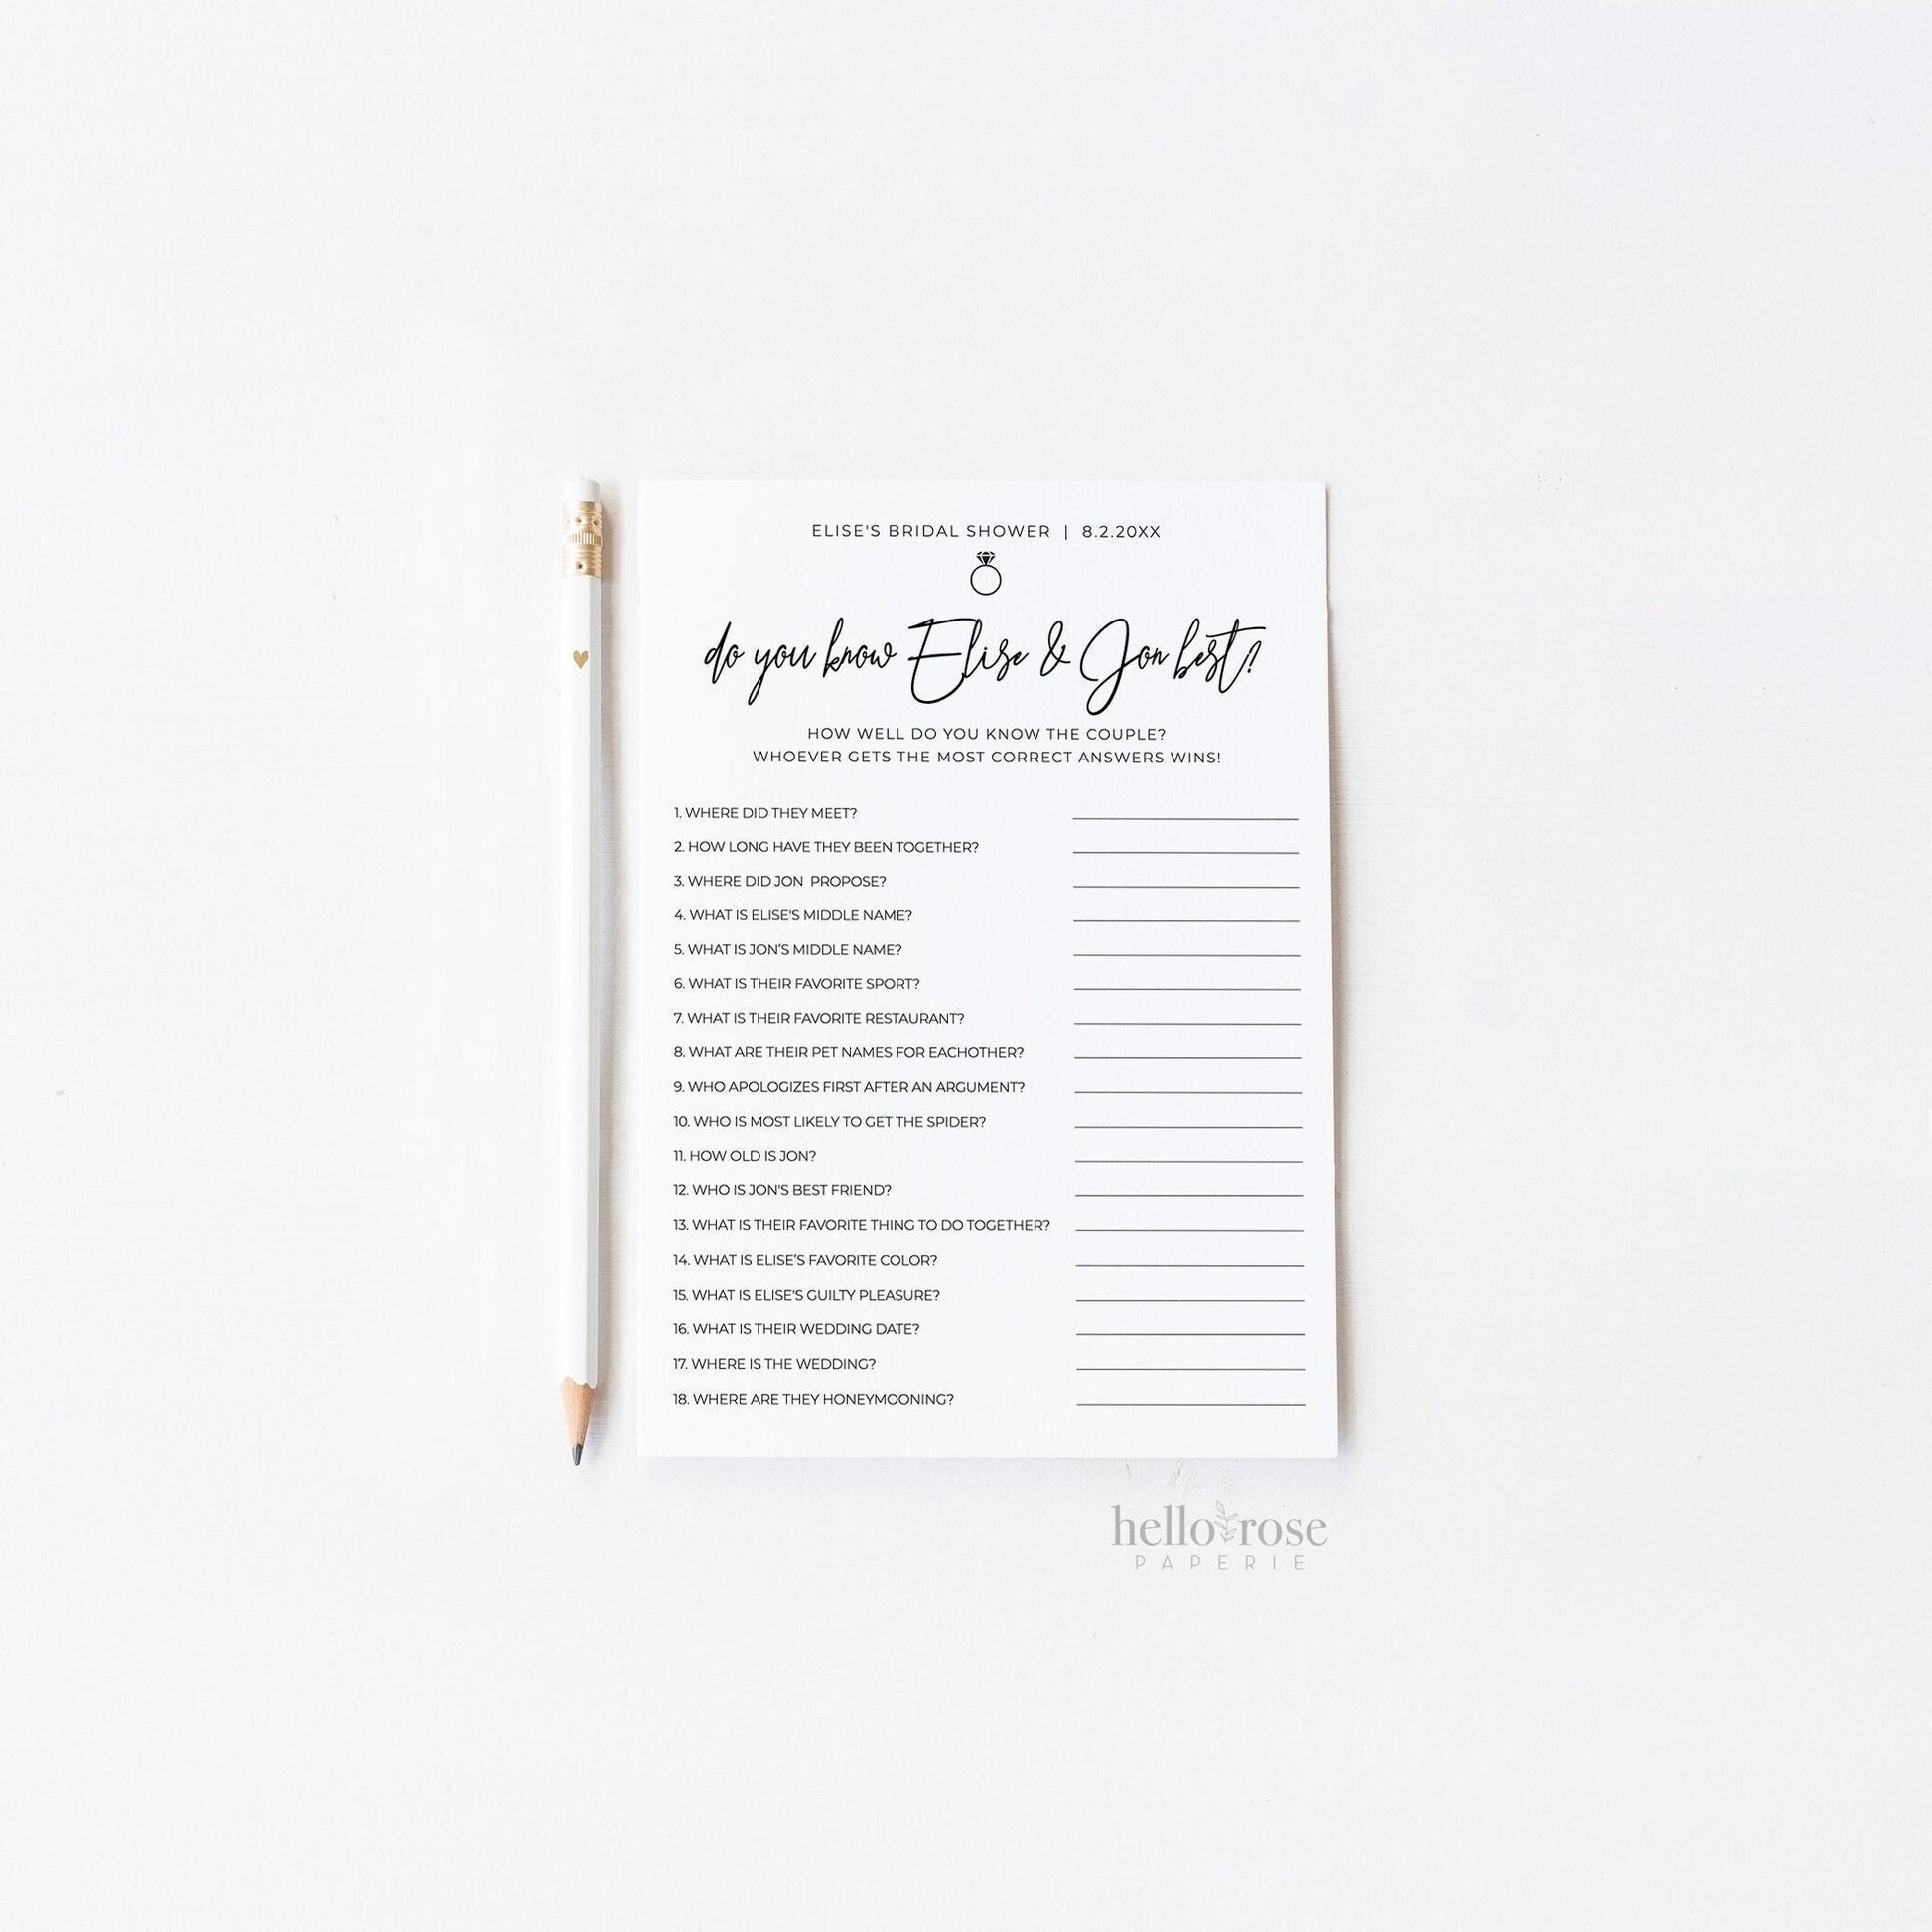 ELISE'S BRIDAL SHOWER | 8.2.20XX
do you know Elise & Jon best?
HOW WELL DO YOU KNOW THE COUPLE?
WHOEVER GETS THE MOST CORRECT ANSWERS WINS!
1. WHERE DID THEY MEET?
2. HOW LONG HAVE THEY BEEN TOGETHER?
3. WHERE DID JON PROPOSE?
4. WHAT IS ELISE'S MIDDLE NAME?
5. WHAT IS JON'S MIDDLE NAME?
6. WHAT IS THEIR FAVORITE SPORT?
7. WHAT IS THEIR FAVORITE RESTAURANT?
8. WHAT ARE THEIR PET NAMES FOR EACHOTHER?
9. WHO APOLOGIZES FIRST AFTER AN ARGUMENT?
10. WHO IS MOST LIKELY TO GET THE SPIDER?
11. HOW OLD IS JON?
12. WHO IS JON'S BEST FRIEND?
13. WHAT IS THEIR FAVORITE THING TO DO TOGETHER?
14. WHAT IS ELISE'S FAVORITE COLOR?
15. WHAT IS ELISE'S GUILTY PLEASURE?
16. WHAT IS THEIR WEDDING DATE?
17. WHERE IS THE WEDDING?
18. WHERE ARE THEY HONEYMOONING?
hello rose
PAPERIE